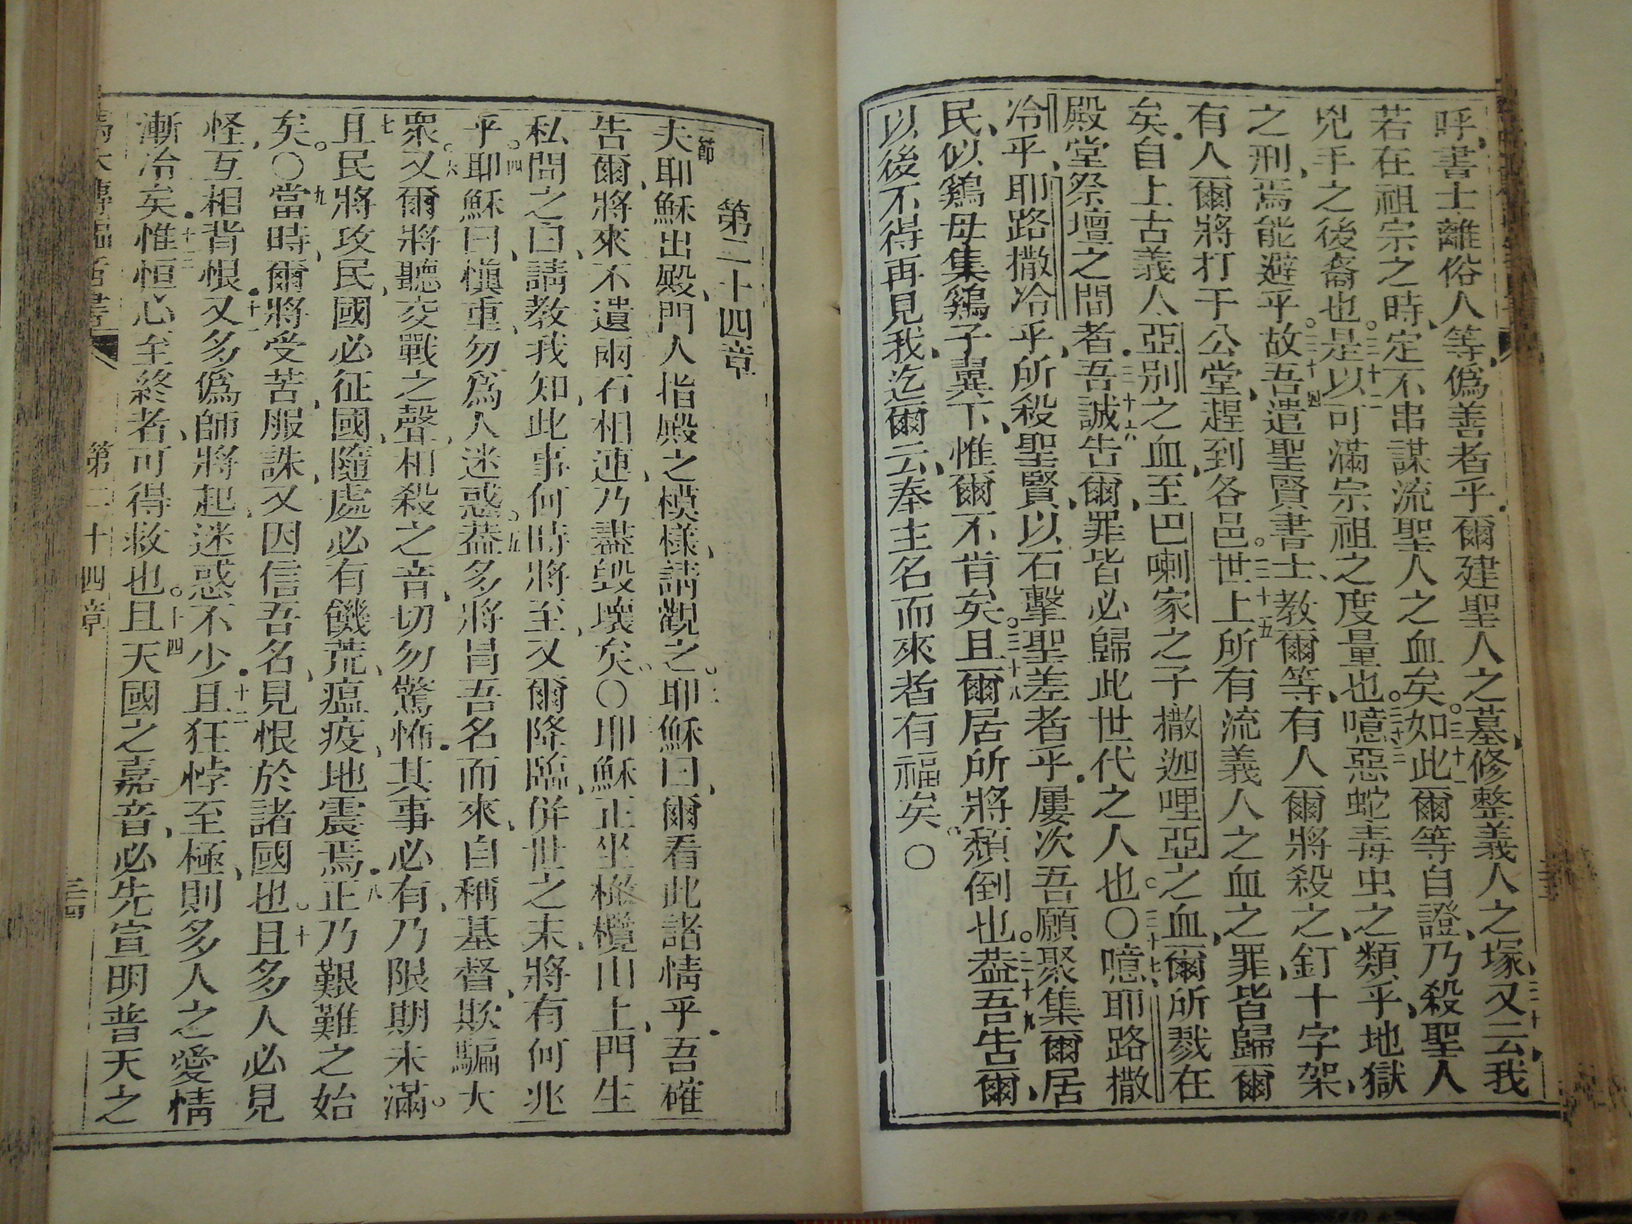 呼書士離俗人等僞善者乎爾建聖人之墓修整義人之塚又三十云我
若在祖宗之時定不串謀流聖人之血矣三十一如此爾等自證乃殺聖人
兇手之後裔也三十二是以可滿宗祖之度量也三十三噫惡蛇毒虫之類乎地獄
之刑焉能避乎三十四故吾遣聖賢書士教爾等有人爾將殺之釘十字架
有人爾將打于公堂趕到各邑三十五世上所有流義人之血之罪皆歸爾
矣自上古義人亞別之血至巴喇家之子撒迦哩亞之血爾所戮在
殿堂祭壇之間者三十六吾誠告爾罪皆必歸此世代之人也〇三十七噫耶路撒
冷乎耶路撒冷乎所殺聖賢以石擊聖差者乎屢次吾願聚集爾居
民似鷄母集鷄子翼下惟爾不肯矣三十八且爾居所將頹倒也三十九葢吾告爾
以後不得再見我迄爾云奉主名而來者有福矣〇
第二十四章
節夫耶穌出殿門人指殿之模樣請觀之二耶穌曰爾看此諸情乎吾確
告爾將來不遺兩石相連乃盡毀壞矣〇三耶穌正坐橄欖山上門生
私問之曰請教我知此事何時將至又爾降臨併世之末將有何兆
乎四耶穌曰愼重勿爲人迷惑五葢多將冐吾名而來自稱基督欺騙大
衆六又爾將聽交戰之聲相殺之音切勿驚怖其事必有乃限期未滿
七且民將攻民國必征國隨處必有饑荒瘟疫地震焉八正乃艱難之始
矣〇九當時爾將受苦服誅又因信吾名見恨於諸國也十且多人必見
怪互相背恨十一又多僞師將起迷惑不少十二且狂悖至極則多人之愛情
漸冷矣十三惟恒心至終者可得救也十四且天國之嘉音必先宣明普天之
第二十四章
三四